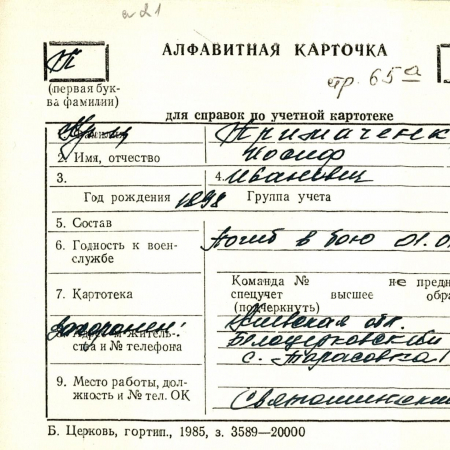 а21
П
АЛФАВИТНАЯ КАРТОЧКА
стр. 65а
(первая бук-
ва фамилии)
для справок по учетной картотеке
Примаченк
2. Имя, отчество Иосиф
3. 4. Иванович
Год рождения 1898 Группа учета
5. Состав
6. Годность к воен-
службе
Погиб в бою 01.0
7. Картотека
Команда № не предн
спецучет высшее обра
(подчеркнуть)
захоронен: Киевская обл.
ства и № телефона
Белоцерковский
с. Тарасовка
9. Место работы, дол-
жность и № тел. ОК
Святошинский
Б. Церковь, гортип., 1985, з. 3589—20000